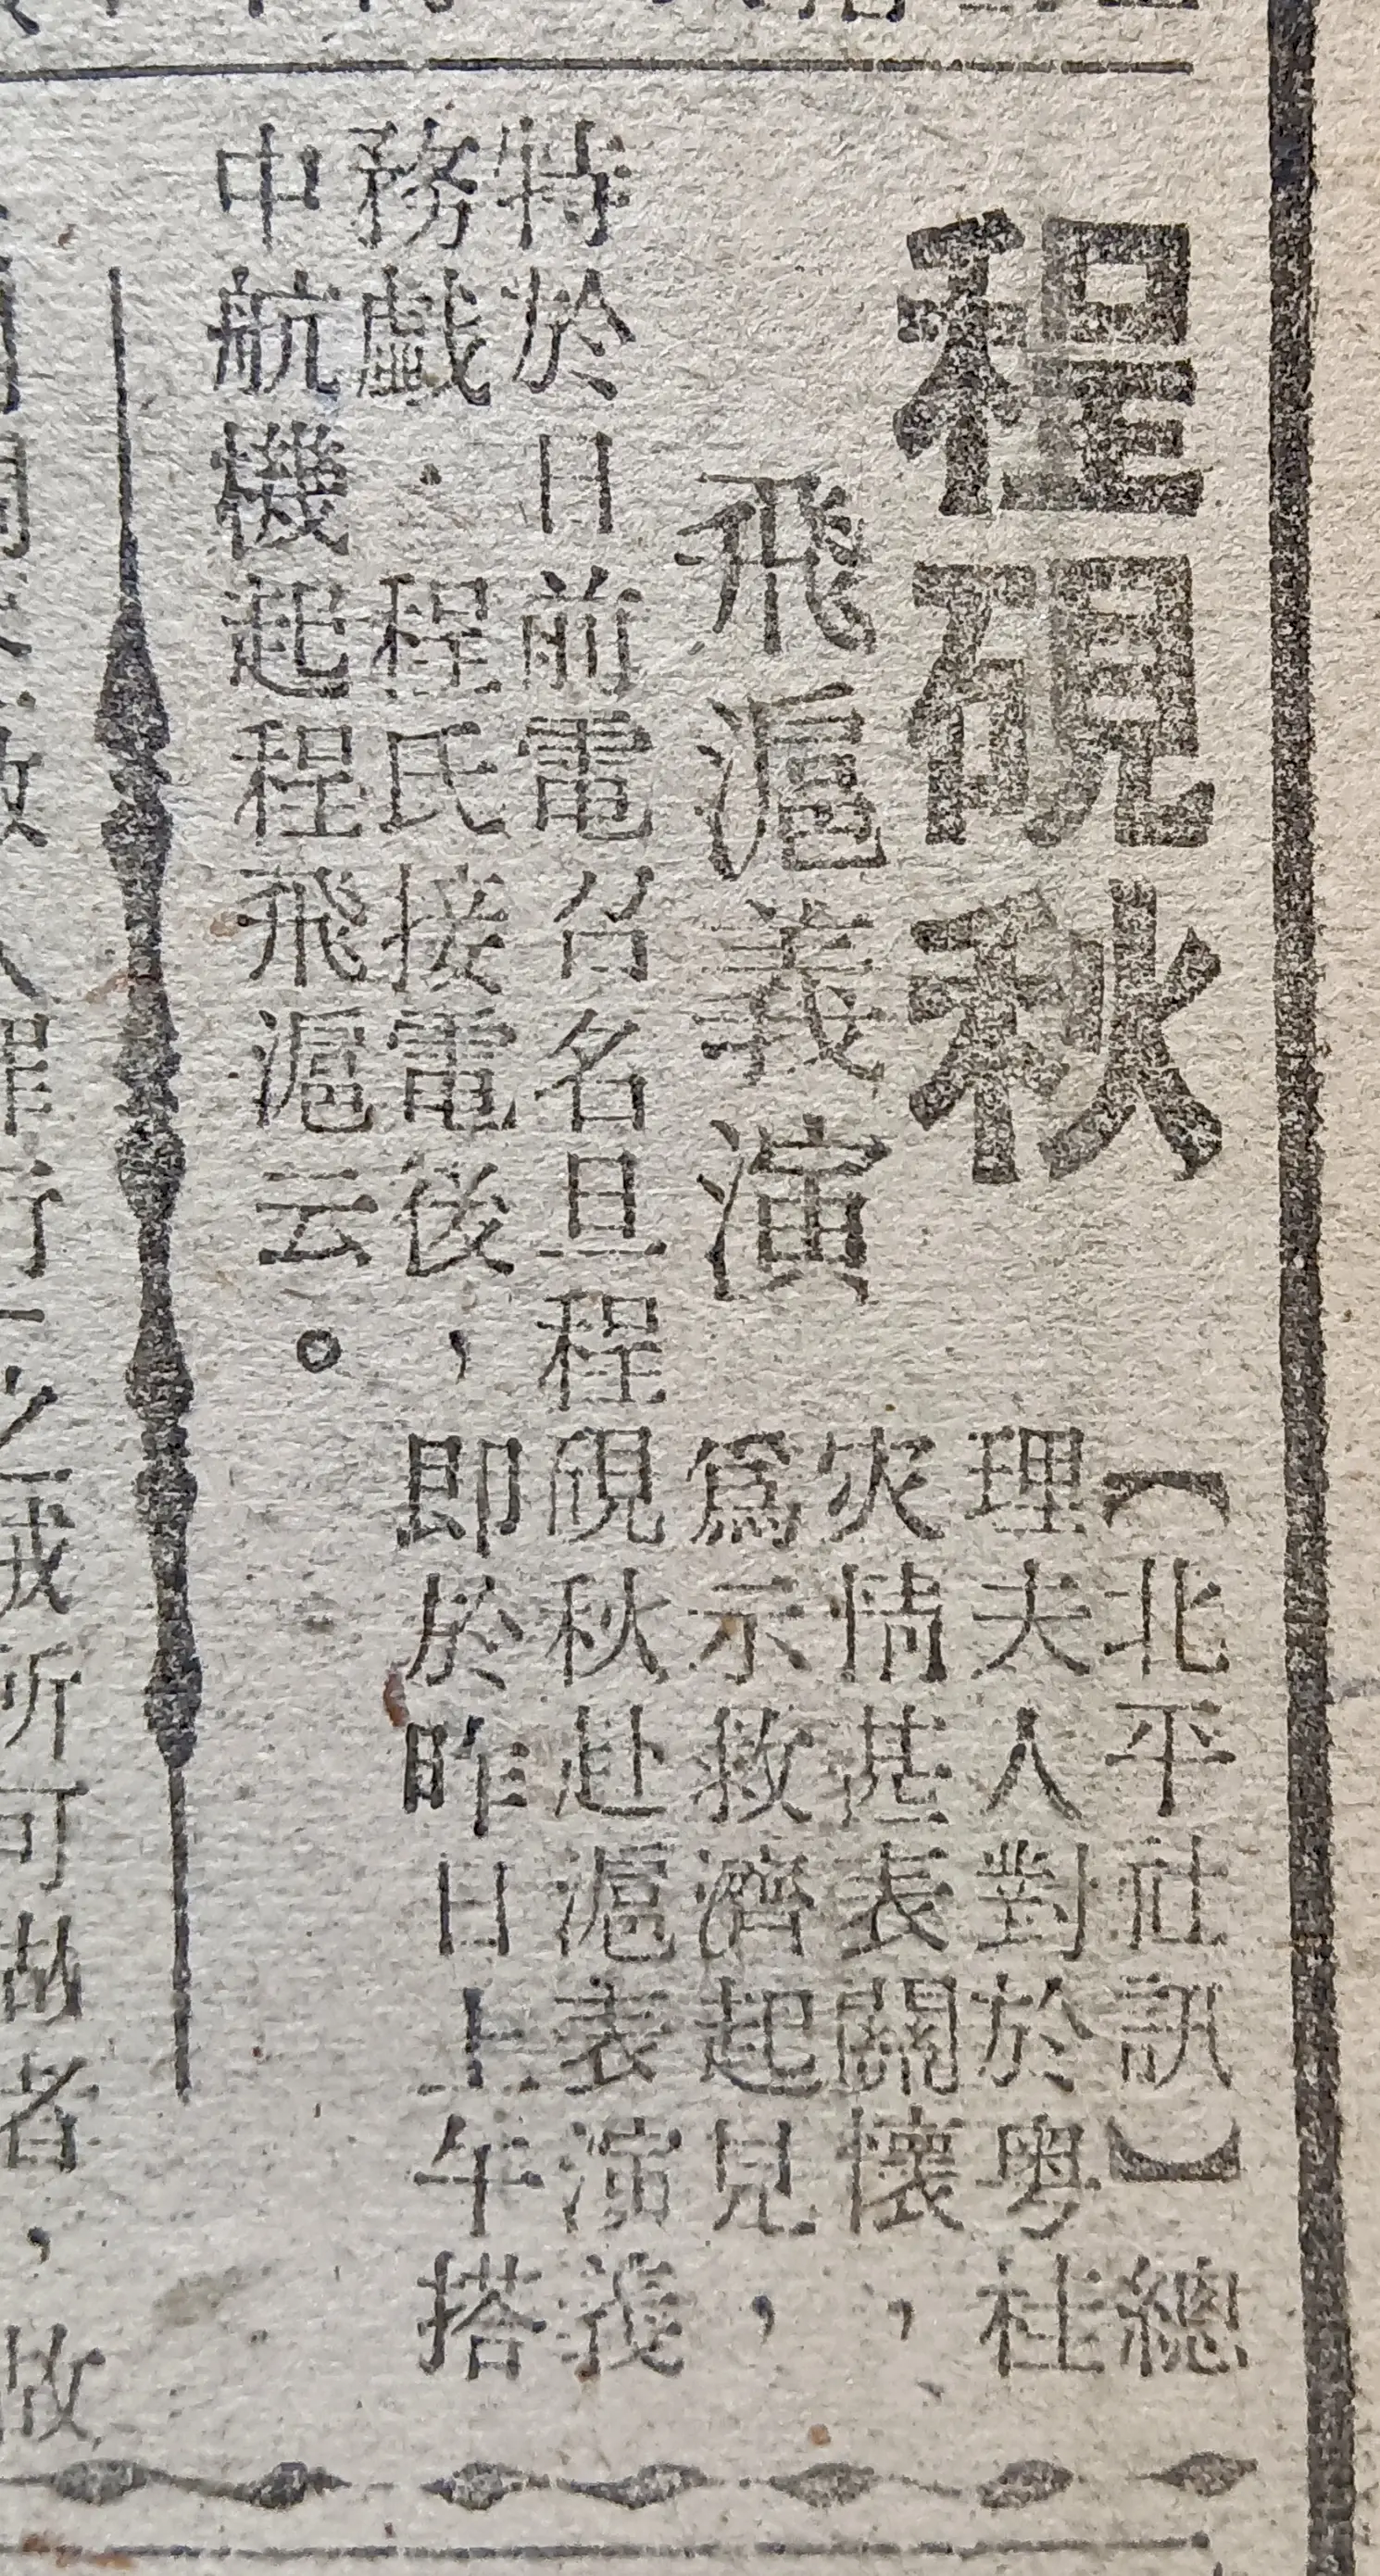 程硯秋
飛滬義演
（北平社訊）總
理夫人對於粵桂
災情甚表關懷，
爲示救濟起見，
特於日前電召名旦程硯秋赴滬表演義
務戲．程氏接電後，即於昨日上午搭
中航機起程飛滬云。